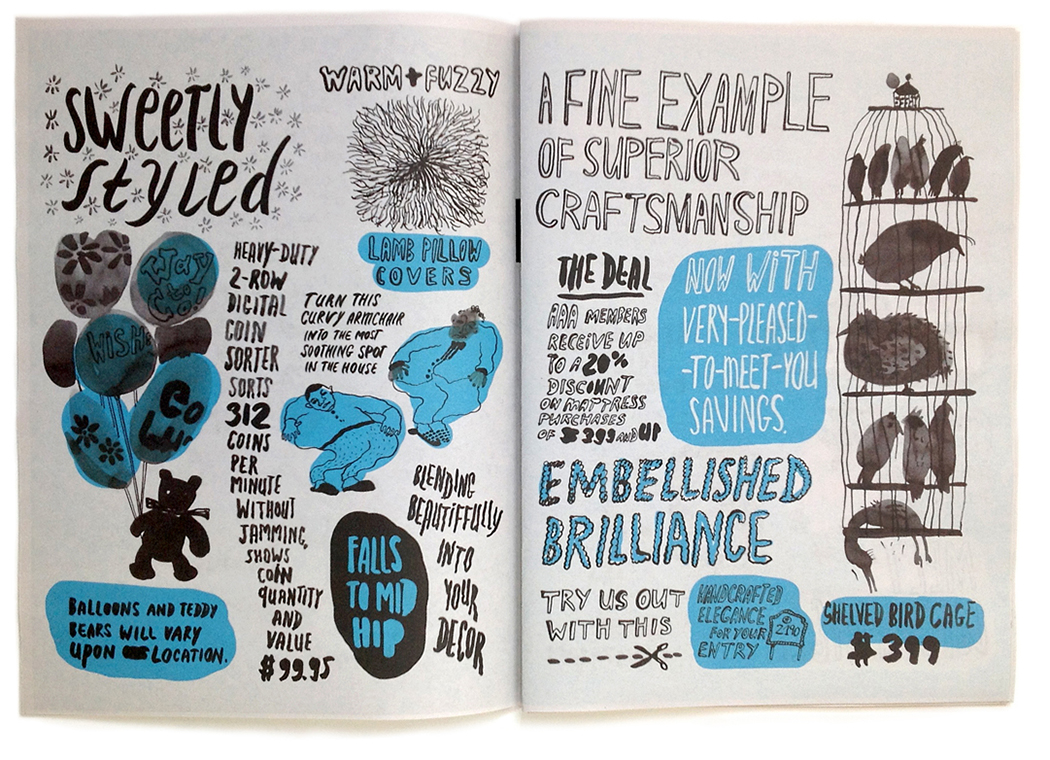 SWEETLY
STYLED
WARM + FUZZY
LAMB PILLOW
COVERS
WISH
HEAVY-DUTY
2-ROW
DIGITAL
COIN
SORTER
SORTS
312
COINS
PER
MINUTE
WITHOUT
JAMMING,
SHOWS
COIN
QUANTITY
AND
VALUE
$99.95
TURN THIS
CURVY ARMCHAIR
INTO THE MOST
SOOTHING SPOT
IN THE HOUSE
BALLOONS AND TEDDY
BEARS WILL VARY
UPON LOCATION.
FALLS
TO MID
HIP
BLENDING
BEAUTIFFULLY
INTO
YOUR
DECOR
A FINE EXAMPLE
OF SUPERIOR
CRAFTSMANSHIP
THE DEAL
AAA MEMBERS
RECEIVE UP
TO A 20%
DISCOUNT
ON MATTRESS
PURCHASES
OF $399 AND UP
NOW WITH
VERY-PLEASED-
-TO-MEET-YOU
SAVINGS.
EMBELLISHED
BRILLIANCE
TRY US OUT
WITH THIS
HANDCRAFTED
ELEGANCE
FOR YOUR
ENTRY
SHELVED BIRD CAGE
$399